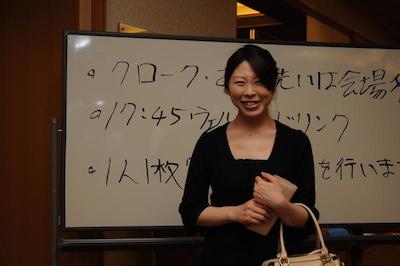 • クローク・お 洗いは会場
• 17:45 ウェル ドリンク
• 1人1枚 を行いま